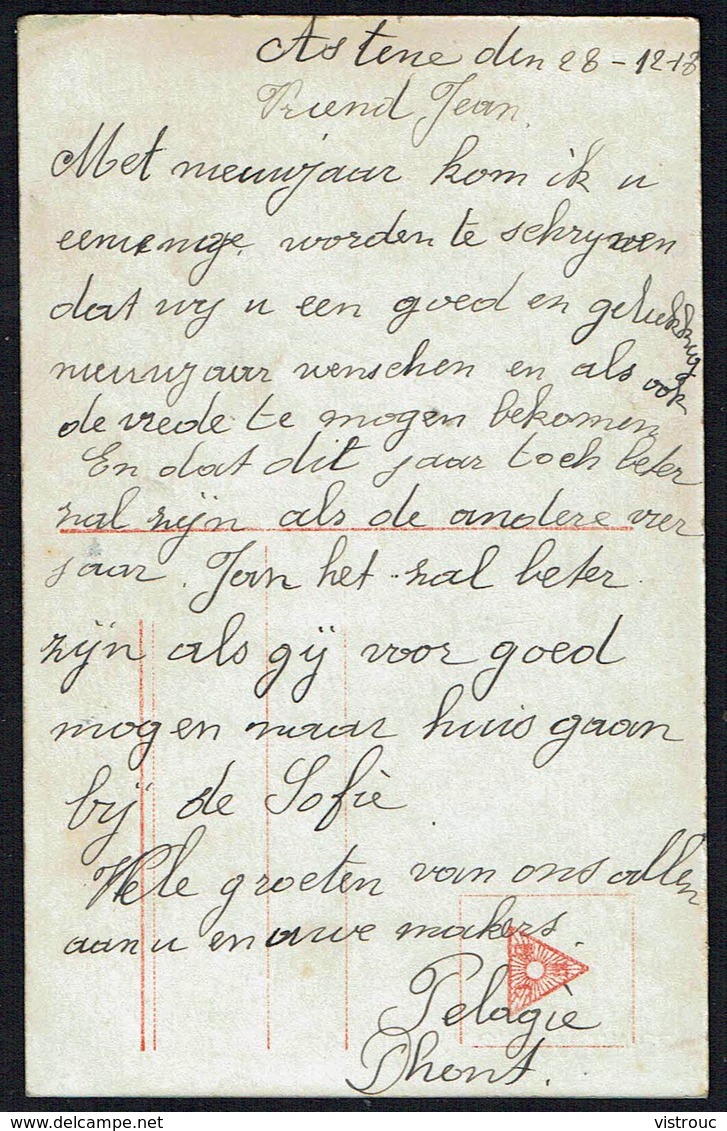 Astene den 28-12-18
Vriend Jean
Met nieuwjaar kom ik u
eenienige worden te schryven
dat wy u een goed en gelukkig
nieuwjaar wenschen en als ook
de vrede te mogen bekomen
En dat dit jaar toch beter
zal zijn als de andere vier
jaar. Jan het zal beter
zijn als gij voor goed
mogen naar huis gaan
bij de Sofie
Vele groeten van ons allen
aan u en uwe makers.
Pelagie
Dhont.
www.delcampe.net
vistrouc